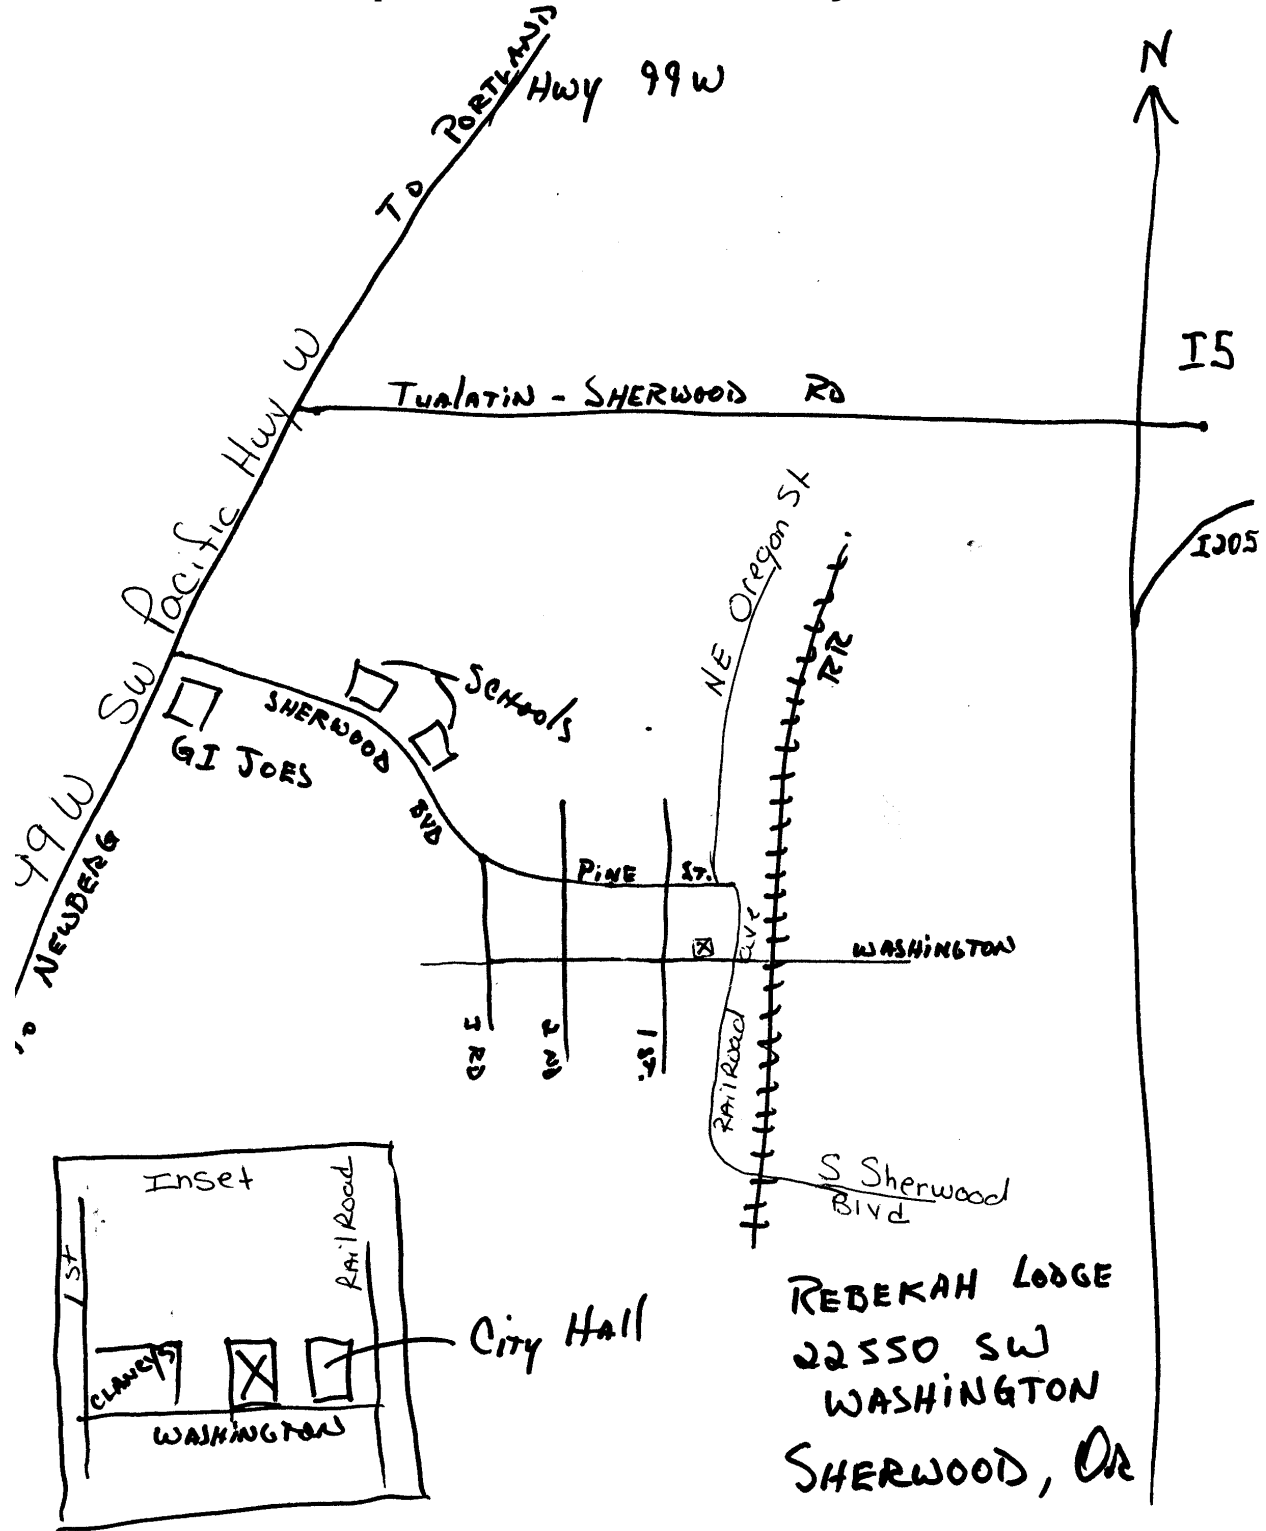 N
TO PORTLAND
HWY 99W
I5
TUALATIN - SHERWOOD RD
SW Pacific Hwy W
I205
NE Oregon St
RR
SCHOOLS
SHERWOOD BVD
GI JOES
99W
NEWBERG
PINE ST.
X
WASHINGTON
RAilRoad ave
3 RD
2 ND
1 ST.
S Sherwood
Blvd
Inset
1st
RAilRoad
CLANCYS
X
City Hall
WASHINGTON
REBEKAH LODGE
22550 SW
WASHINGTON
SHERWOOD, OR